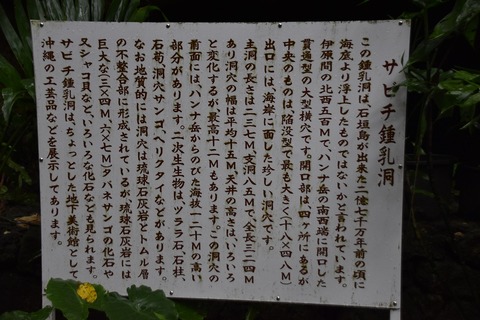 サビチ鍾乳洞
この鍾乳洞は、石垣島が出来た二億七千万年前の頃に
海底より浮上したものではないかと言われています。
伊原間の北西五百Mで、ハンナ岳の南西端に開口した
貫通型の大型横穴です。開口部は四ヶ所にあるが
中央のものは陥没型で最も大きく(十八×四八M)
出口には、海岸に面した珍しい洞穴です。
主洞の長さは二三七M、支洞八五Mで、全長三二四M
あり洞穴の幅は平均十五M、天井の高さはいろいろ
と変化するが最高十二Mもあります。この洞穴の
前面にはハンナ岳からのびた海抜一二十Mの高い
部分があります。二次生生物は、ツララ石、石柱、
石筍、洞穴サンゴ、ヘリクタイなどがあります。
なお地質的には洞穴は琉球石灰岩とトムル層
の不整合部に形成されているが琉球石灰岩には
巨大な(三×四M、六×七M)タバネサンゴの化石や
又シャコ貝など、いろいろな化石なども見られます。
サビチ鍾乳洞は、ちょっとした地下美術館として
沖縄の工芸品などを展示してあります。